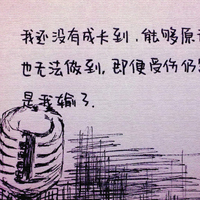 我还没有成卡到,能够原
也无法做到,即便受伤仍
是我输了.